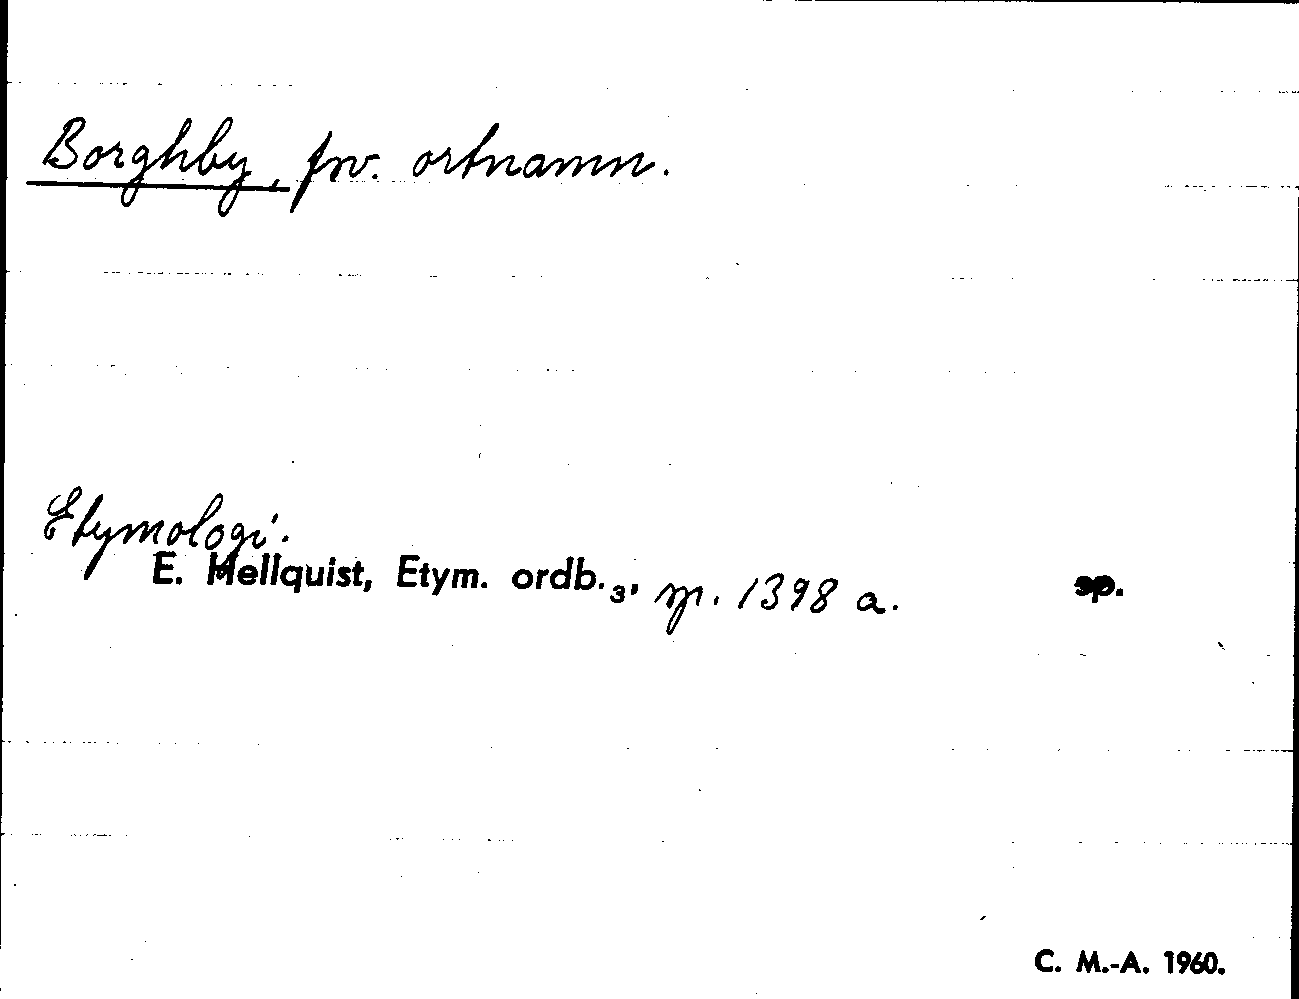 Borghby, fsv. ortnamn.
Etymologi.
E. Hellquist, Etym. ordb.₃, sp. 1398 a. sp.
C. M.-A. 1960.